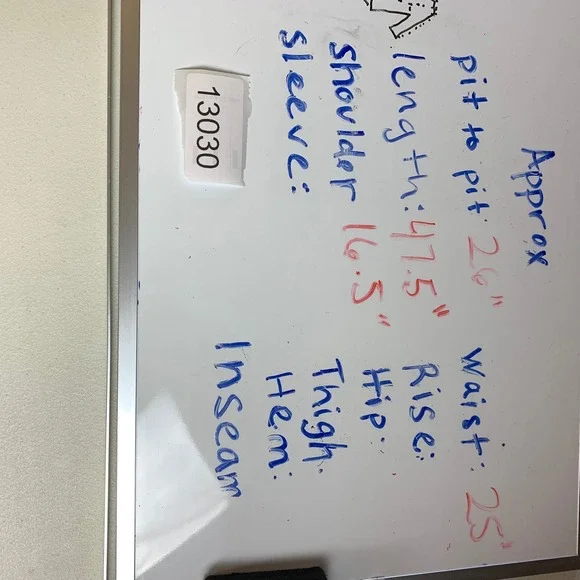 Approx
pit to pit: 26" Waist: 25"
length: 47.5" Rise:
Shoulder 16.5" Hip:
Sleeve: Thigh:
Hem:
Inseam
13030